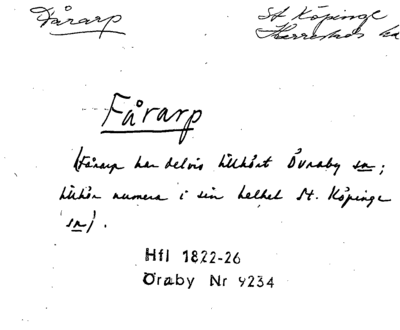 Fårarp
St Köpinge
Herrestads hd
Fårarp
(Fårarp har delvis tillhört Övraby sn;
tillhör numera i sin helhet St. Köpinge
sn).
Hfl 1822-26
Öraby Nr 9234